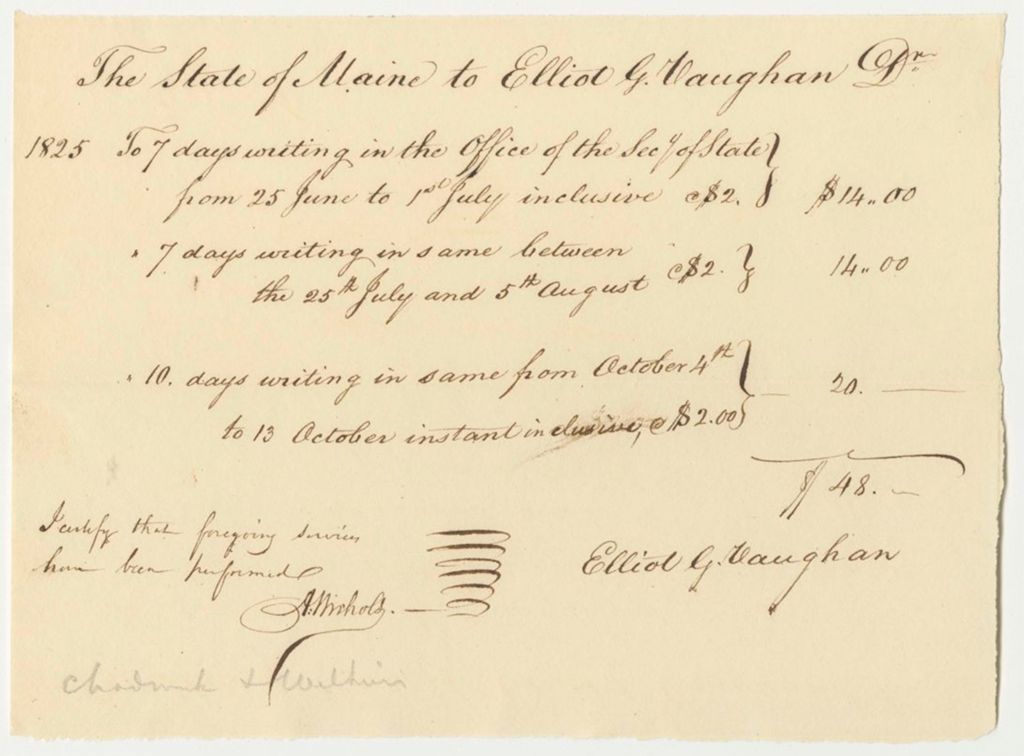 The State of Maine to Elliot G. Vaughan Dr.
1825 To 7 days writing in the Office of the Secy of State
from 25 June to 1st July inclusive @ $2. $14.00
" 7 days writing in same between
the 25th July and 5th August @ $2. 14.00
" 10. days writing in same from October 4th
to 13 October instant inclusive, @ $2.00 20.
$48.
I certify that foregoing services
have been performed
A. Nichols.
Elliot G. Vaughan
Chadwick &